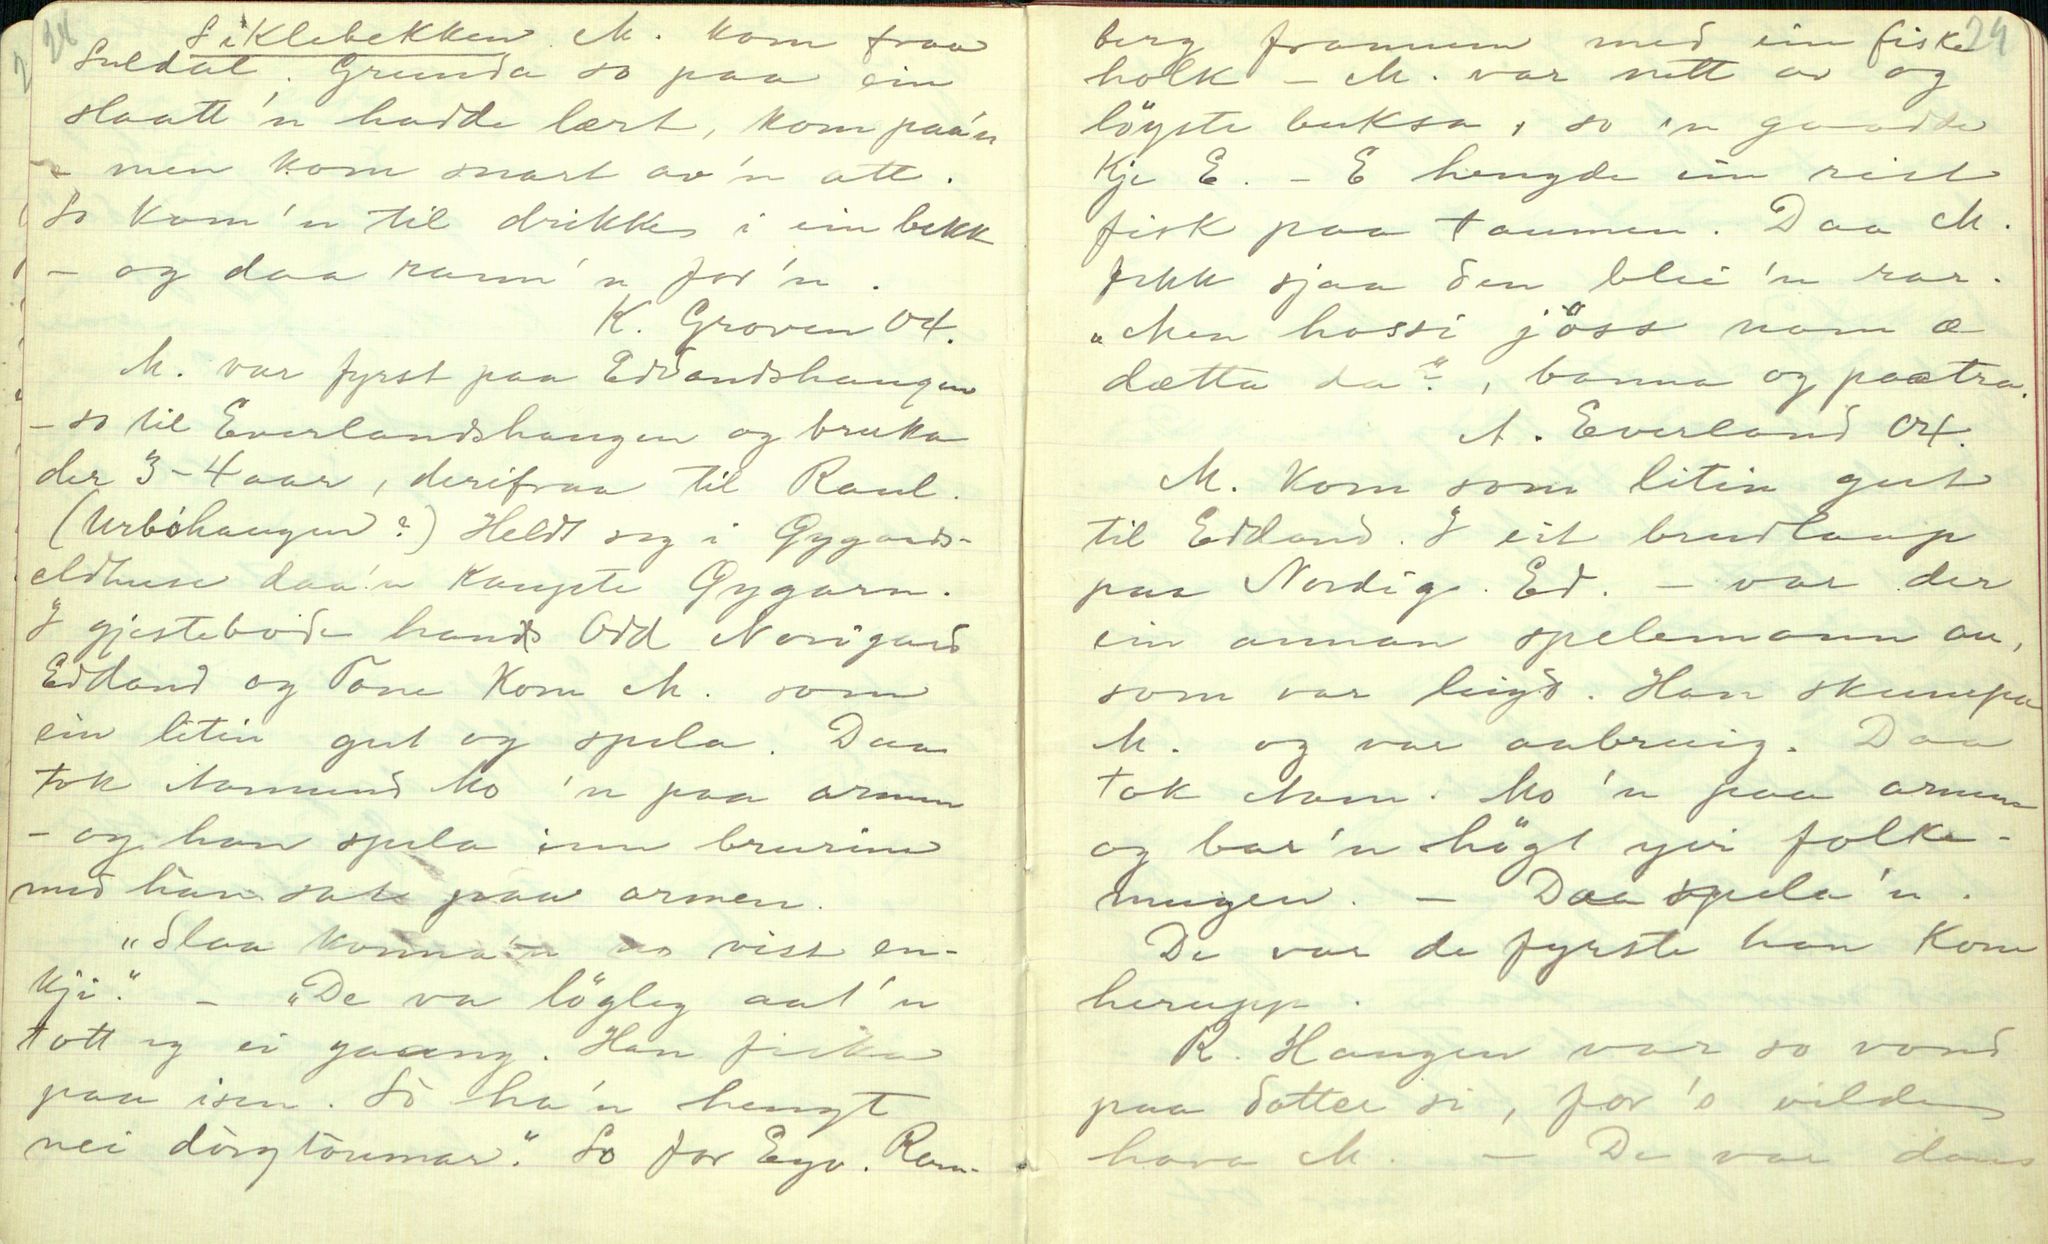 24
Siklebekken. M. kom fraa
Suldal. Grunda so paa ein
slaatt 'n hadde lært, kom paa'n
– men kom snart av'n att.
So kom'n til drikke i ein bekk
– og daa rann'n for'n.
K. Groven Ox.
M. var fyrst paa Edlandshaugen
– so til Everlandshaugen og bruka
der 3-4 aar, derifraa til Raul.
(Urbøhaugen?) Heldt seg i Gygards-
eldhuse daa'n kaupte Gygarn.
I gjestebode hans Odd Norigard
Edland og Tone kom M. som
ein litin gut og spela. Daa
tok Aamund Mo 'n paa armen
– og han spela inn brurine
med han sat paa armen.
„Slaa konna'n so visst en-
kji." – „De va løgleg aat'n
tott eg ei gaang. Han fiska
paa isen. So ha'n hengt
nei dorgtoumar." So for Eyv. Ram-
24
berg framum med ein fiske
holk – M. var nett av og
løyste buksa, so 'n gaadde
kje E. – E hengde ein rist
fisk paa taumen. Daa M.
fekk sjaa den blei'n rar.
„Men hossi jøss nam æ
dætta da"?, banna og paatra.
A. Everland Ox.
M. kom som litin gut
til Edland. I eit brudlaup
paa Nordig. Ed. – var der
ein annan spelemann au,
som var leigd. Han skumpa
M. og var aabruig. Daa
tok Aam. Mo 'n paa armen
og bar'n høgt yvi folke-
mugen. – Daa spela'n.
De var de fyrste han kom
herupp.
R. Haugen var so vond
paa dotter si, for 'o vilde
hava M. – De var dans